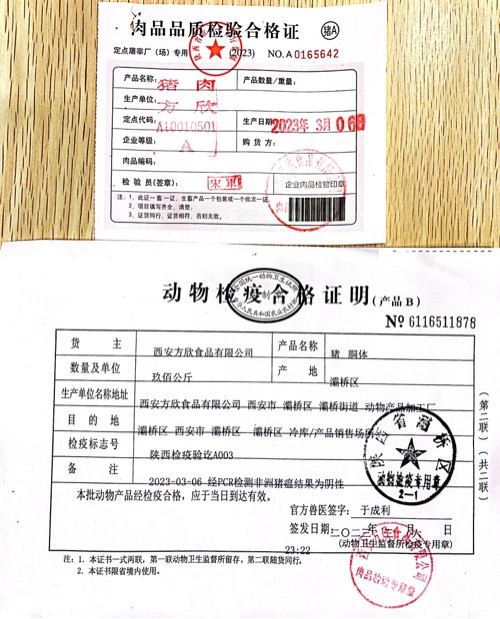 肉品品质检验合格证 猪A
定点屠宰厂（场）专用 (2023) NO.A 0165642
产品名称：猪肉 产品数量/重量：
生产单位：方欣
定点代码：A10010501 生产日期：2023年 3月 06日
企业等级：A 购货方：
肉品编码：
检验员(签章)： 宋军 企业肉品检验印章
注：1、此证一畜一证、生畜产品一个包装或一个批次一证。
2、项目填写齐全、清楚。
3、证货同行，证货相符，否则无效。
动物检疫合格证明（产品B）
№ 6116511878
货主 西安方欣食品有限公司 产品名称 猪 胴体
数量及单位 玖佰公斤 产地 灞桥区
生产单位名称地址 西安方欣食品有限公司 西安市 灞桥区 灞桥街道 动物产品加工厂
目的地 灞桥区 西安市 灞桥区 灞桥区 冷库/产品销售场所
检疫标志号 陕西检疫验讫A003
备注 2023-03-06 经PCR检测非洲猪瘟结果为阴性
本批动物产品经检疫合格，应于当日到达有效。
官方兽医签字：于成利
签发日期：二〇二三年 三月 六日
23:22
(动物卫生监督所检疫专用章)
注：1. 本证书一式两联，第一联动物卫生监督所留存，第二联随货同行。
2. 本证书限省境内使用。
（第二联）（共二联）
陕西省灞桥区
动物检疫专用章
2-1
肉品检验专用章